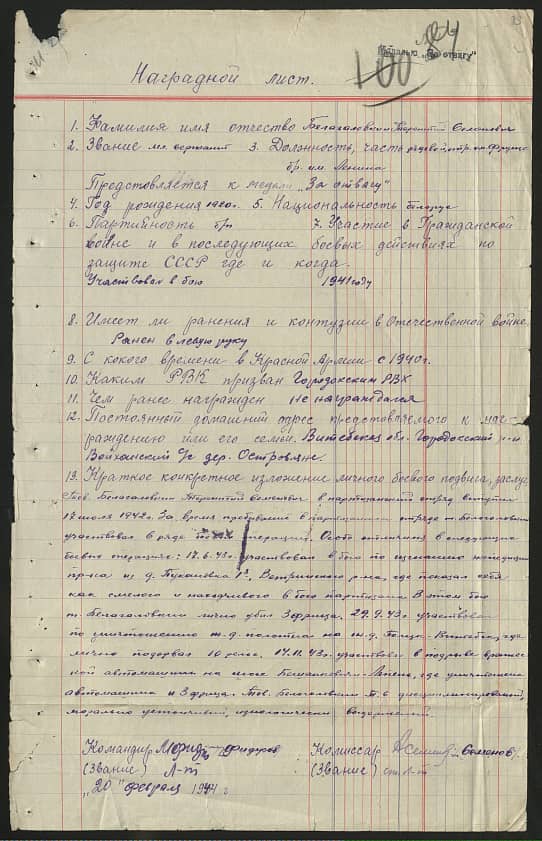 Медалью „За отвагу"
Наградной лист.
1. Фамилия имя отчество Белагаловвин Терентий Семенович
2. Звание мл. сержант 3. Должность, часть рядовой, отр. им. Фрунзе
бр. им. Ленина
Предстовляется к медали „За отвагу"
4. Год рождения 1920г. 5. Национальность белорус
6. Партийность б/п 7. Участие в Гражданской
войне и в последующих боевых действиях по
защите СССР где и когда.
Участвовал в бою 1941 году
8. Имеет ли ранения и контузии в Отечественной войне
Ранен в левую руку
9. С кокого времени в Красной Армии с 1940 г.
10. Каким РВК призван Городокским РВК
11. Чем ранее награжден Не награждался
12. Постоянный домашний адрес представляемого к наг-
раждению или его семьи. Витебская обл. Городокский р-н
Войханский с/с дер. Островляне.
13. Краткое конкретное изложение личного боевого подвига, заслуг
Тов. Терентий Семенович в партизанский отряд вступил
17 июля 1942г. За время пребывания в партизанском отряде т.
участвовал в ряде операций. Особо отличился в следующих
боевых операциях: 17.6.43г. участвовал в бою по изгнанию экспедиции
пр-ка из д. Ветринского р-на, где показал себя
как смелого и находчивого в бою партизана. В этом бою
т. лично убил 3 фрица. 29.9.43г. участвовал
по уничтожению ж.д. полотна на ж.д. Полоцк-Витебск, где
лично подорвал 10 рельс. 17.11.43г. участвовал в подрыве вражес-
кой автомашины на шоссе Бешанковичи-Лепель, где уничтожена
автомашина и 3 фрица. Тов. Т.С. дисциплинированный,
морально устойчивый, идиологически выдержанный.
Командир Фидоров Комиссар Семенов
(Звание) Л-т (Звание) ст. л-т
„20" февраля 1944 г